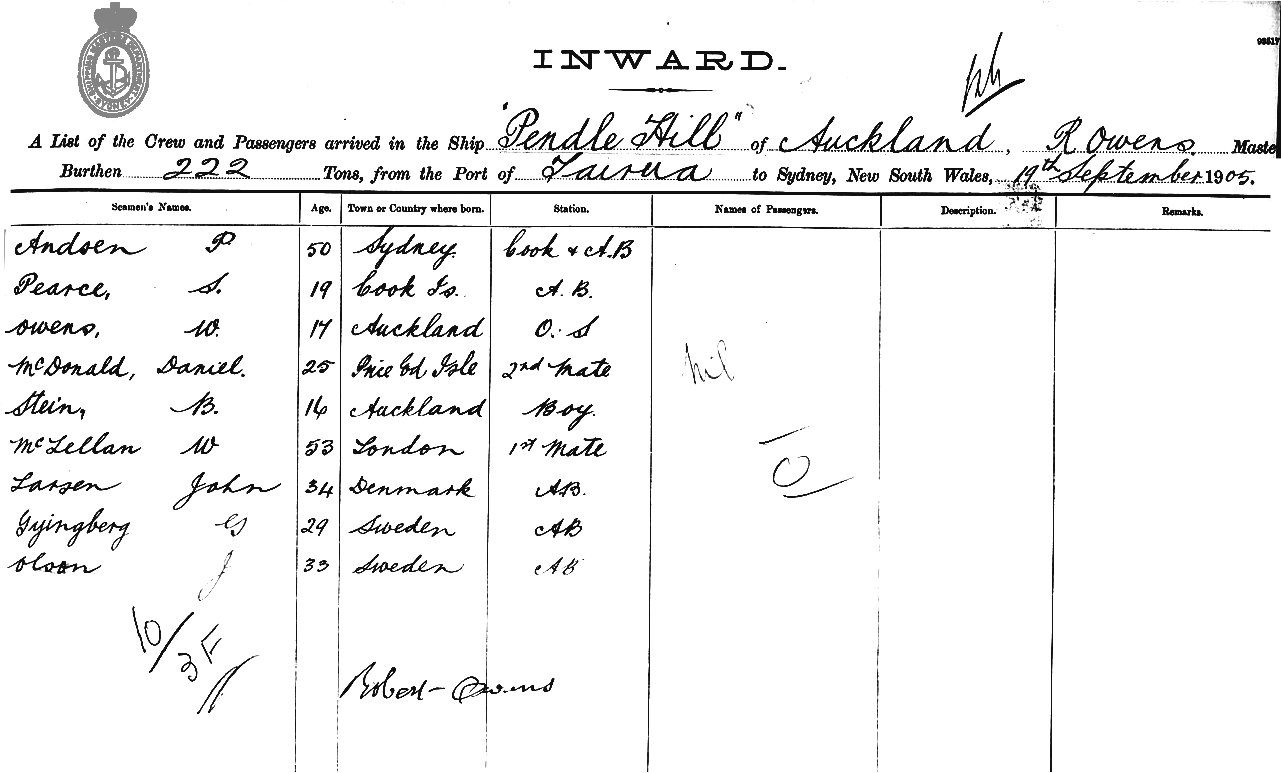 INWARD.
A List of the Crew and Passengers arrived in the Ship "Pendle Hill" of Auckland, R Owens. Maste
Burthen 222 Tons, from the Port of Tairua to Sydney, New South Wales, 19th September 1905.
Seamen's Names. Age. Town or Country where born. Station. Names of Passengers. Description. Remarks.
Andsen P 50 Sydney. Cook & A.B
Pearce, S. 19 Cook Is. A.B.
Owens, W. 17 Auckland O.S
McDonald, Daniel. 25 Prce Ed Isle 2nd Mate nil
Stein, B. 16 Auckland Boy.
McLellan W 53 London 1st Mate
Larsen John 34 Denmark AB. O
Gyingberg 29 Sweden AB
Olson J 33 Sweden AB
10/3F
Robert Owens